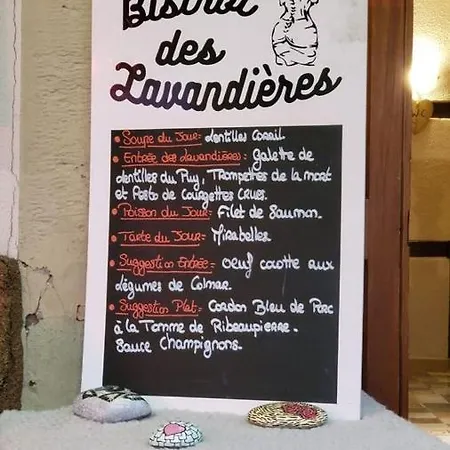 Bistrot
des
Lavandières
• Soupe du Jour: Lentilles Corail
• Entrée des Lavandières: Galette de
Lentilles du Puy, Trompettes de la mort
et Pesto de Courgettes Crues.
• Poisson du Jour: Filet de Saumon.
• Tarte du Jour: Mirabelles.
• Suggestion Entrée: Oeuf cocotte aux
légumes de Colmar.
• Suggestion Plat: Cordon Bleu de Porc
à la Tomme de Ribeaupierre.
Sauce Champignons.